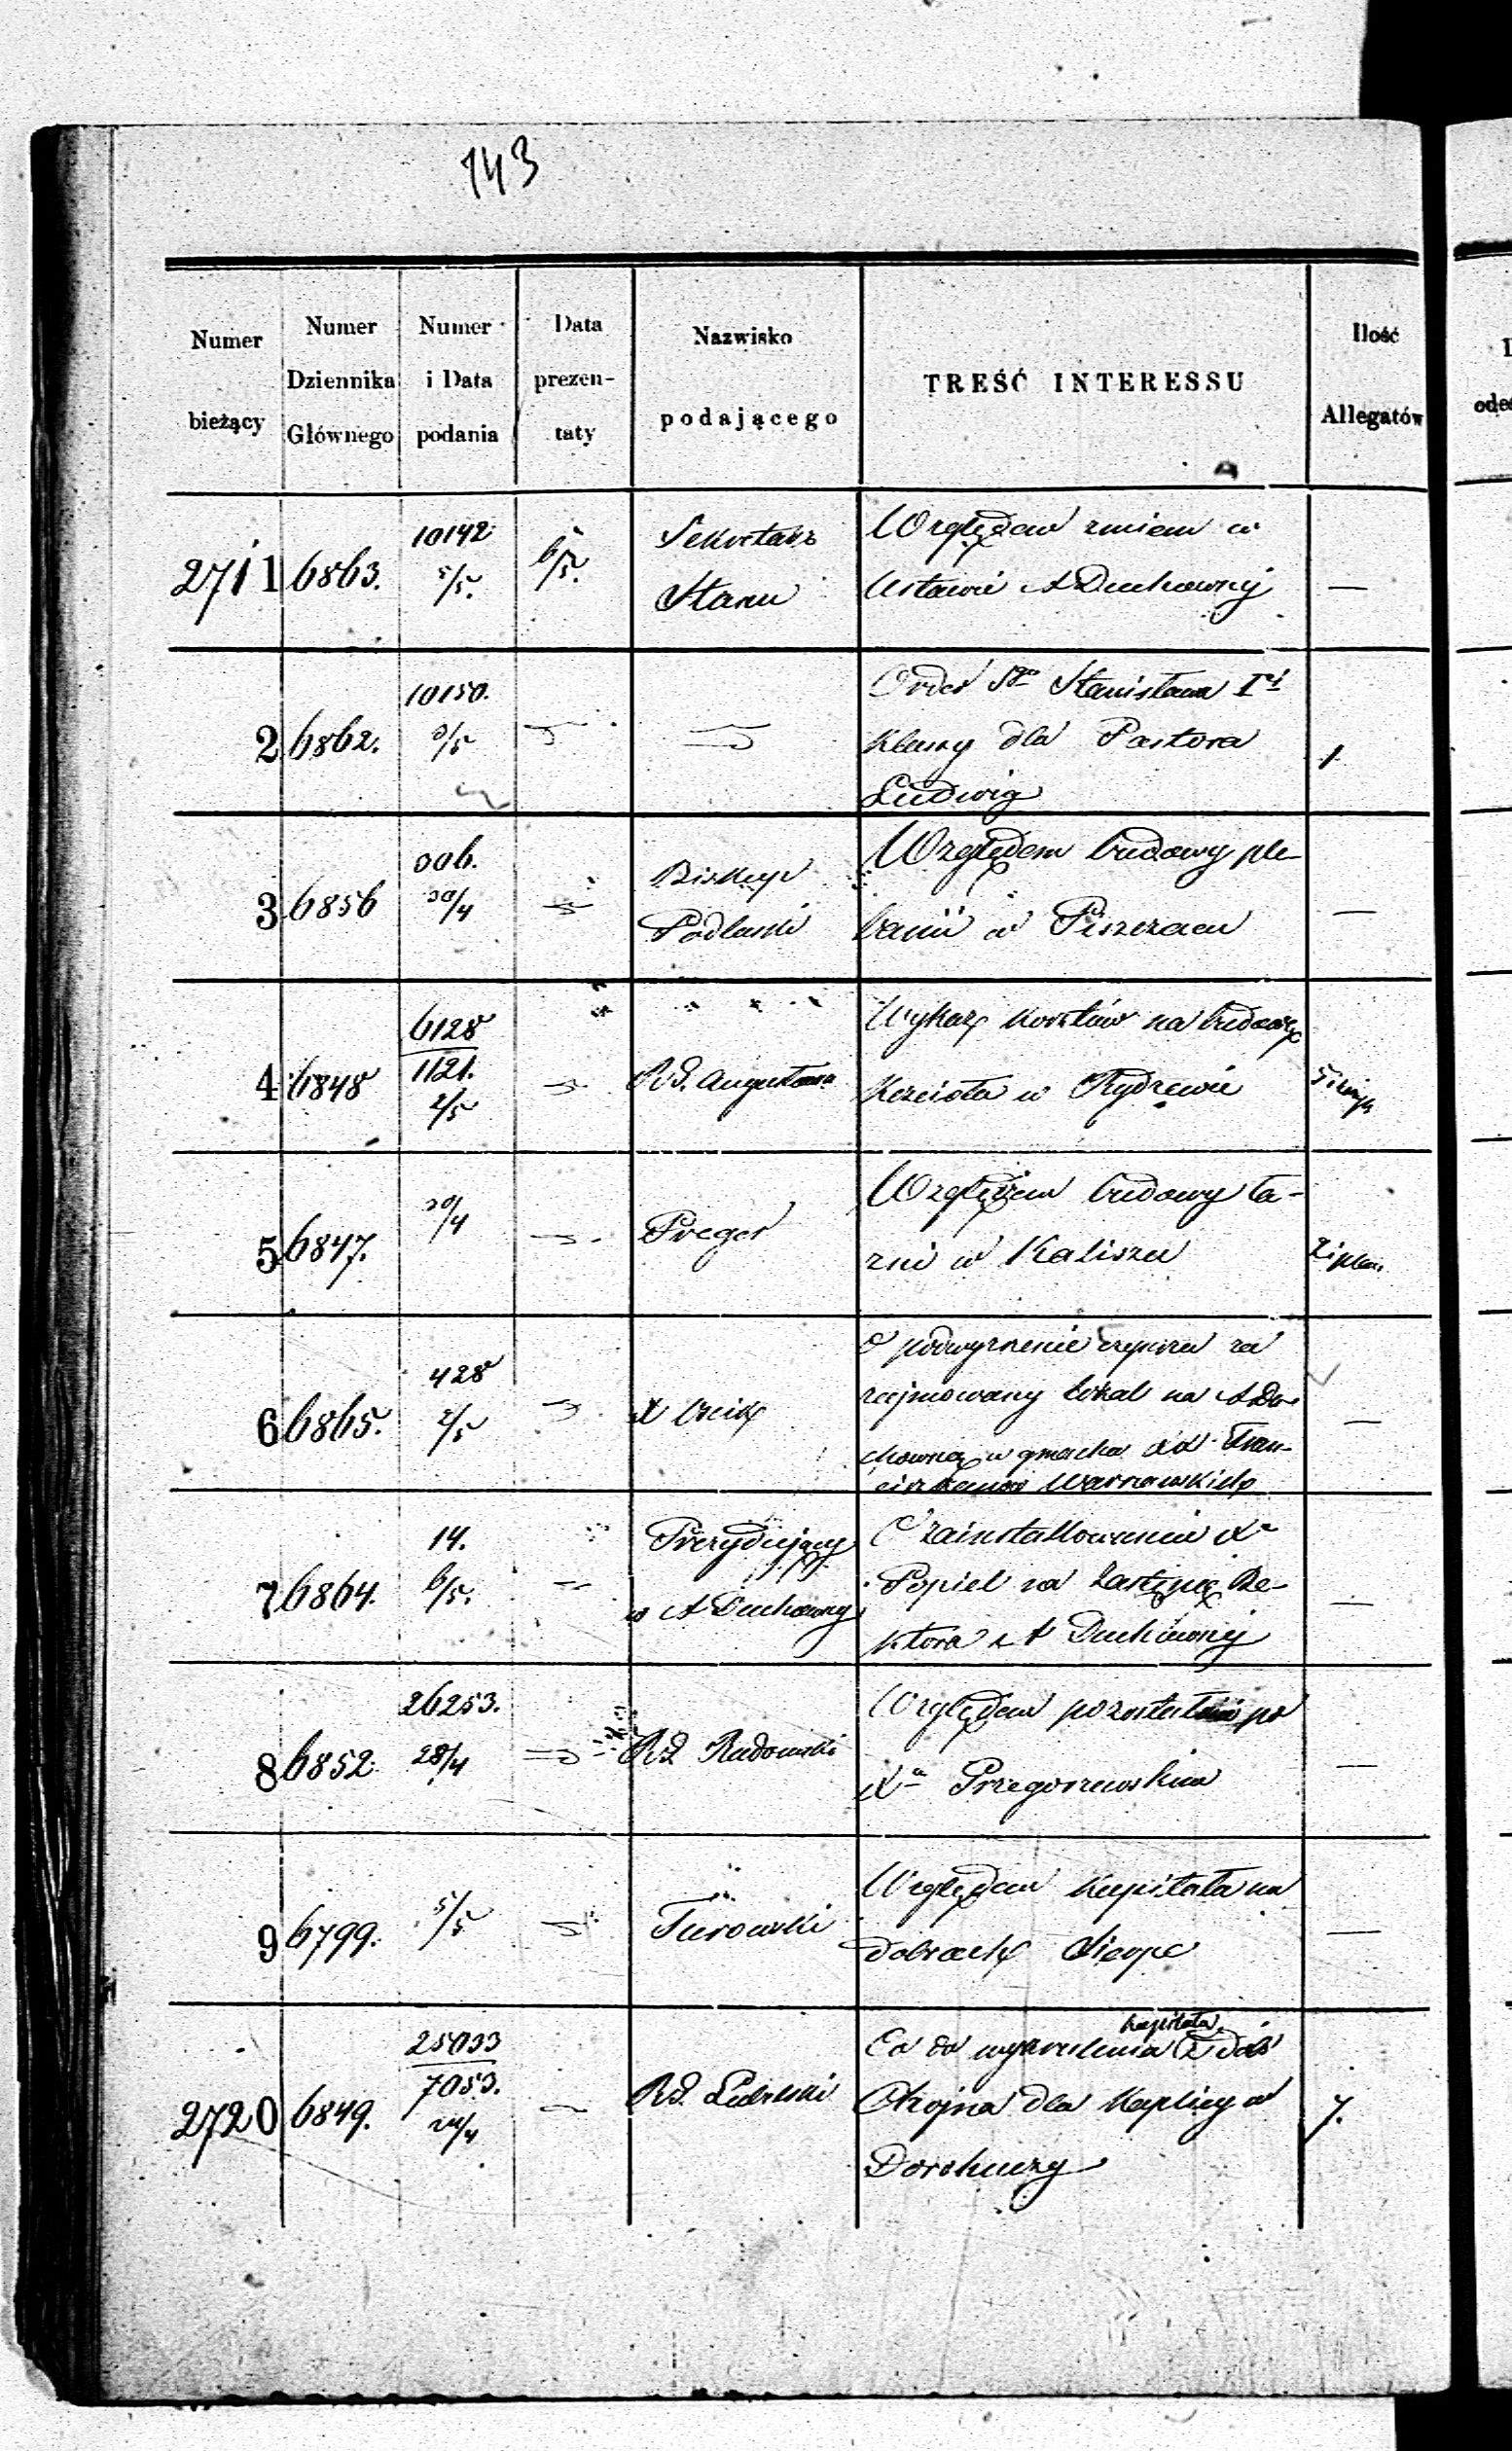 143
Numer bieżący
Numer Dziennika Głównego
Numer i Data podania
Data prezen- taty
Nazwisko podającego
TREŚĆ INTERESSU
Ilość Allegatów
2711 6863. 10142 5/5. 6/5. Sekretarz Stanu
Względem zmian w
Ustawie A Duchownéj —
2 6862. 10150. 5/5
Order Sgo Stanisława Iéj
Klassy dla Pastora 1
Ludwig
3 6856 306. 30/4 Biskup Podlaski
Względem budowy ple-
banii w Piszczacu —
4 6848 6128 1121. 2/5 R.G. Augustows
Wykaz kosztów na budowę
Kościoła w Rydzewie
5 6847. 30/4 Preger
Względem budowy ła-
zni w Kaliszu 2 plan.
6 6865. 428 2/5 X
O podwyższenie czynszu za
zajmowany lokal na A Du-
chowną w gmachu XX Fran- —
ciszkanów Warszawskich
7 6864. 14. 6/5. Prezydujący w A Duchownéj
O zainstallowaniu Xa
Popiel na Zastępcę Re- —
ktora A Duchownéj
8 6852 26253. 28/4 RG Radomski
Względem pozostałości po
Xu Przegorzewskim —
9 6799. 5/5 Turowski
Względem Kapitału na
dobrach Sierpc —
2720 6849. 25033 7053. 24/4 R.G. Lubelski
Co do wykreślenia kapitału z dóbr
Chojna dla Kaplicy w 7.
Dorohuczy